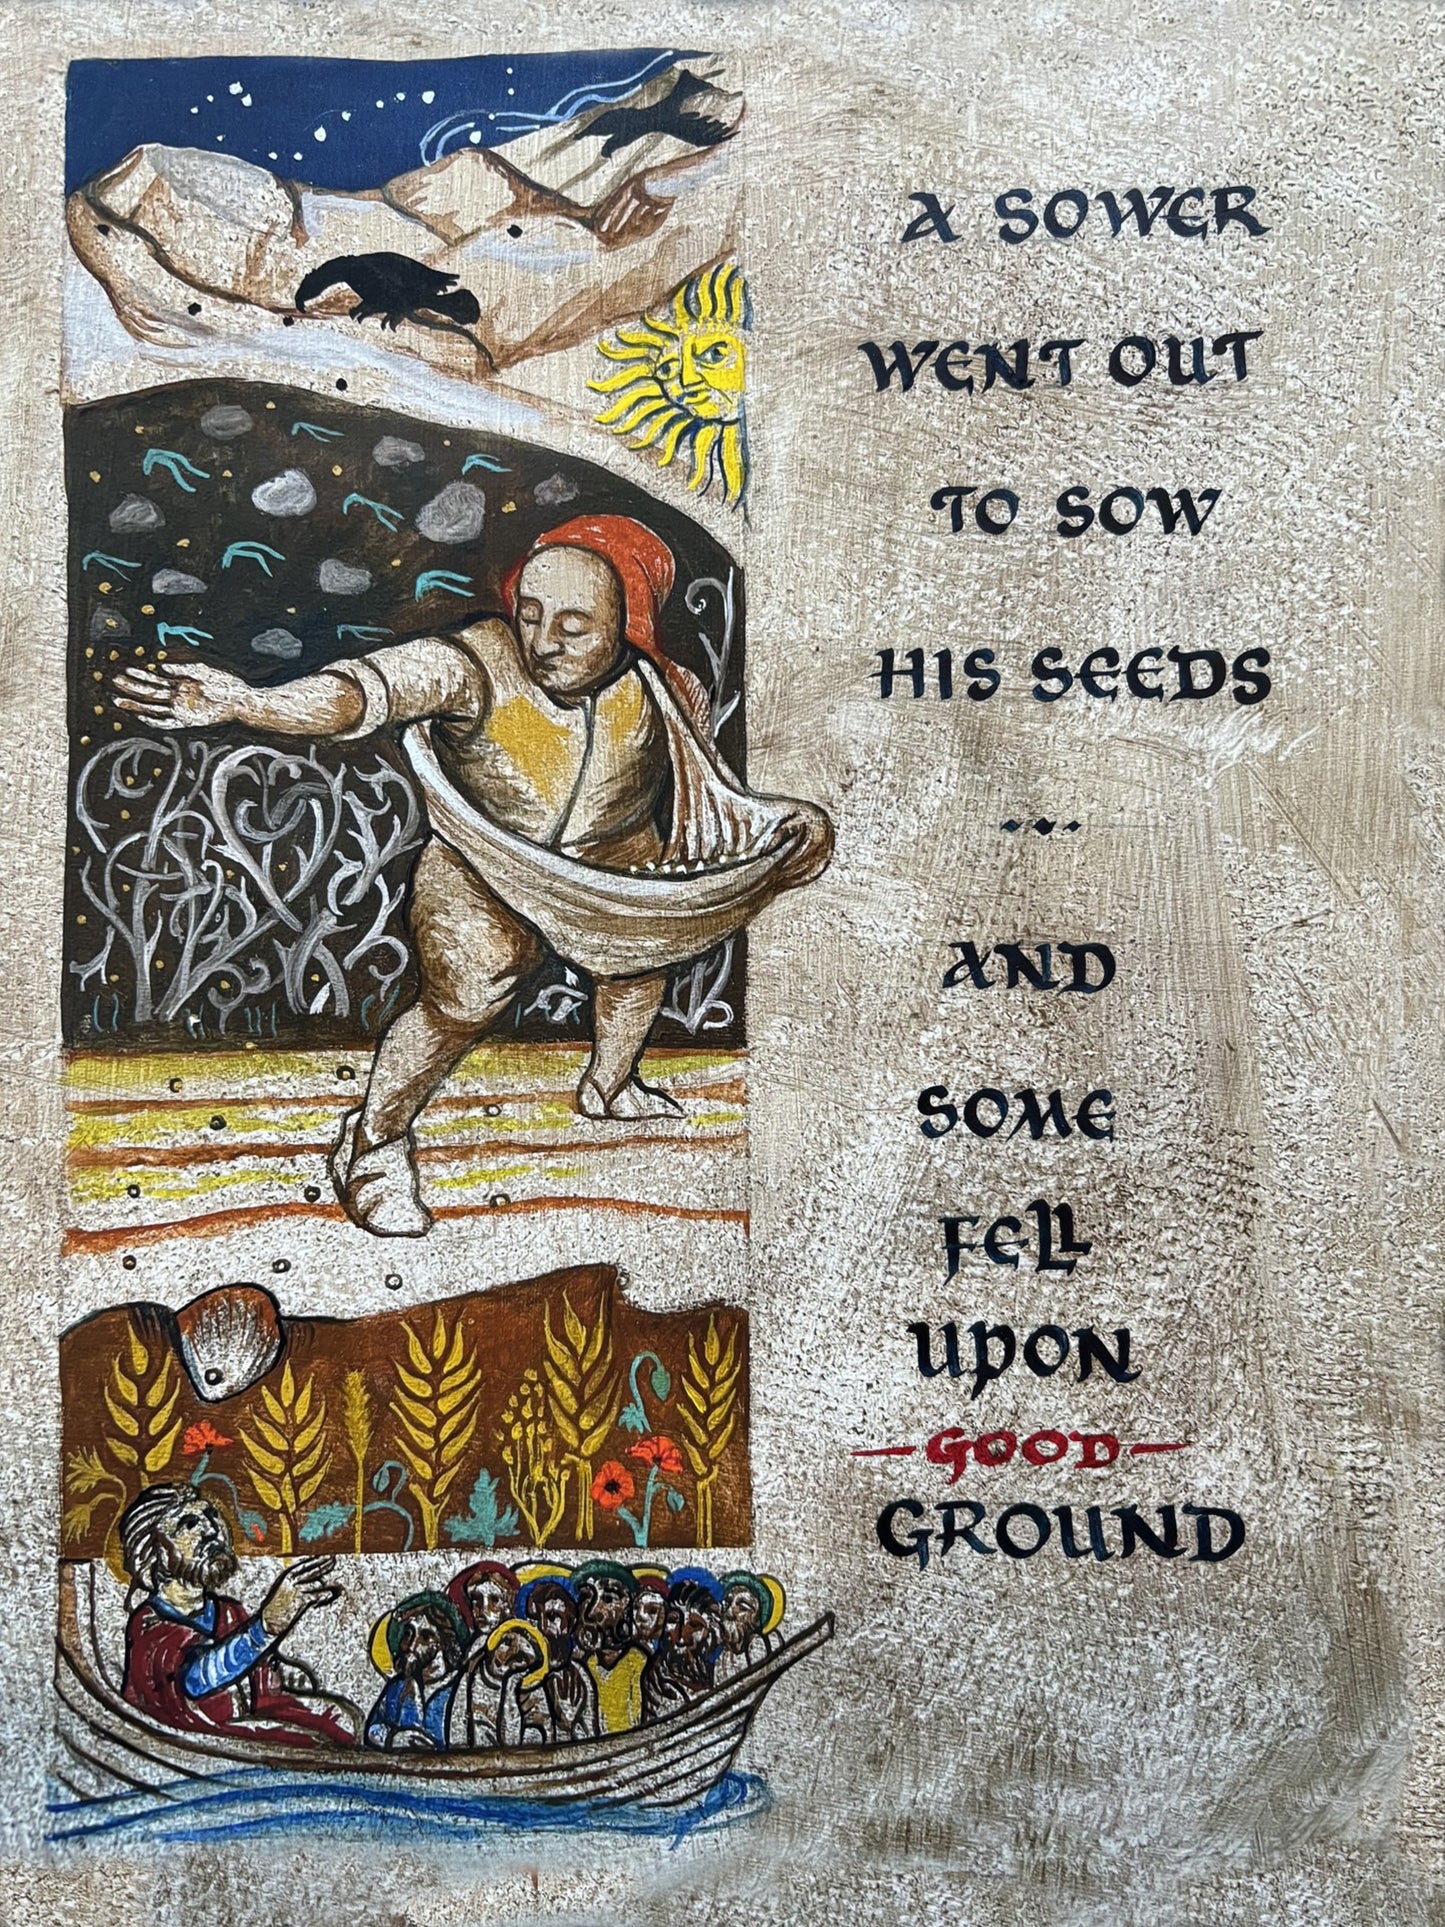 A SOWER
WENT OUT
TO SOW
HIS SEEDS
...
AND
SOME
FELL
UPON
—GOOD—
GROUND